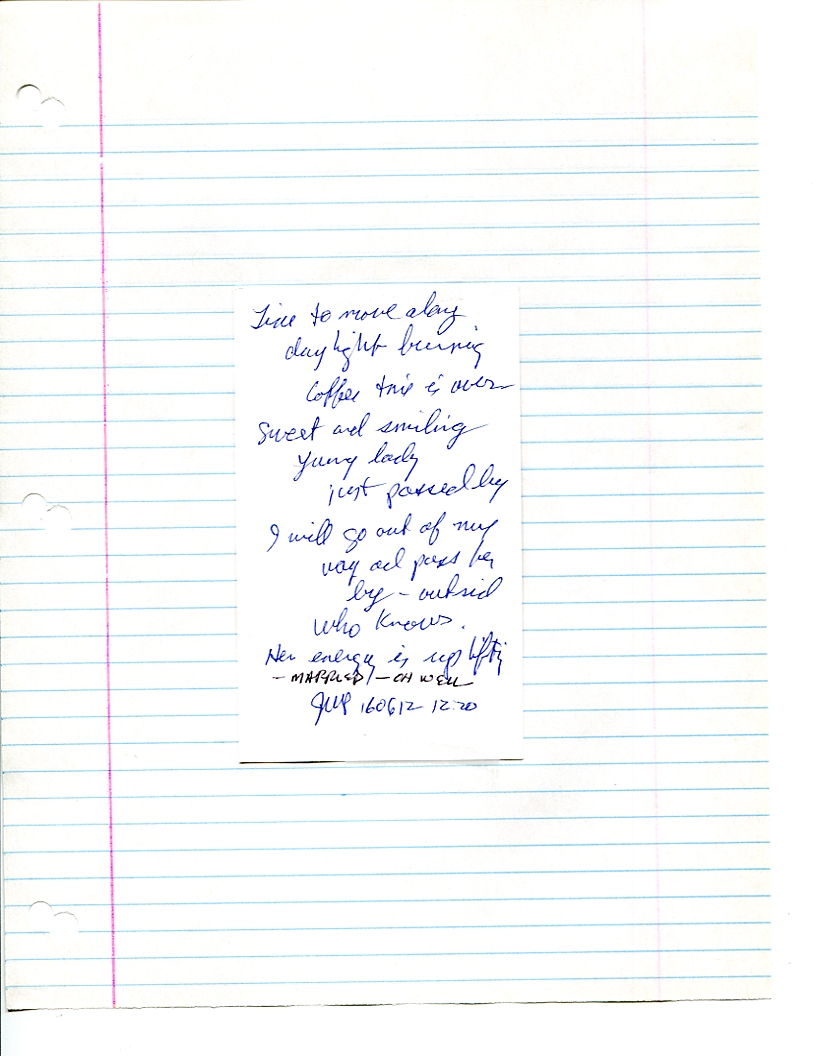 Time to move along
daylight burning
Coffee time is over
Sweet and smiling
young lady
just passed by
I will go out of my
way and pass her
by - outsid
who knows.
Her energy is uplifting
- MARRIED - OH WELL
160612 12:20